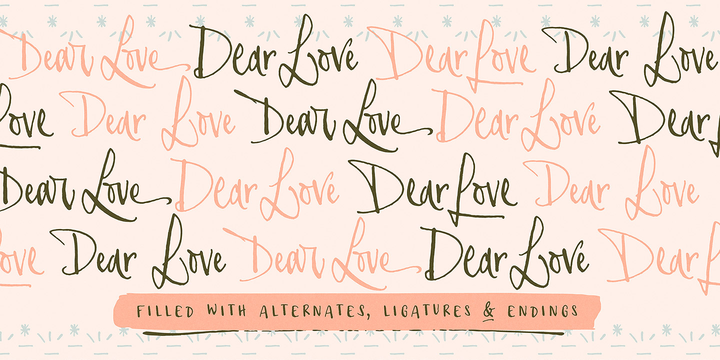 Dear Love Dear Love Dear Love Dear Love
Love Dear Love Dear Love Dear Love Dear L
Dear Love Dear Love Dear Love Dear Love
ove Dear Love Dear Love Dear Love Dear L
FILLED WITH ALTERNATES, LIGATURES & ENDINGS